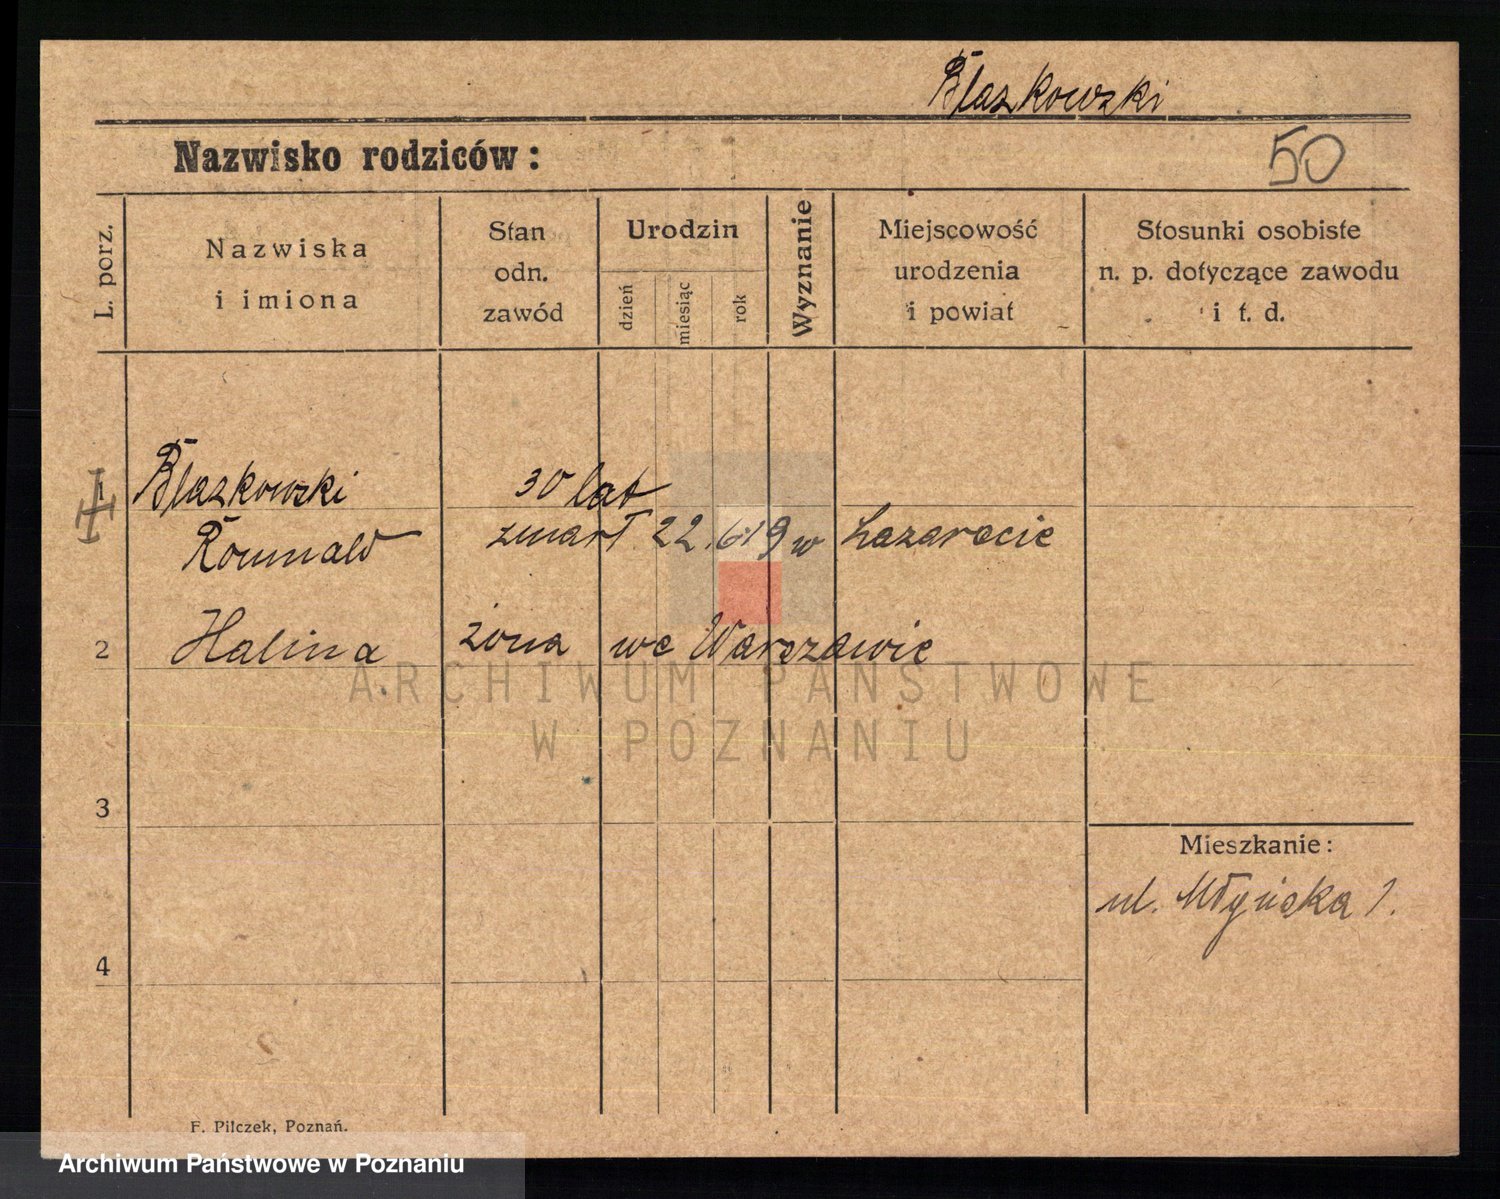 Blaskowski
Nazwisko rodziców:
50
L. porz.
Nazwiska
i imiona
Stan
odn.
zawód
Urodzin
dzień
miesiąc
rok
Wyznanie
Miejscowość
urodzenia
i powiat
Stosunki osobiste
n. p. dotyczące zawodu
i t. d.
1 Blaskowski 30 lat
Romuald zmarł 22.6.19 w Lazarecie
2 Halina żona we Warszawie
ARCHIWUM PAŃSTWOWE
W POZNANIU
3
Mieszkanie:
ul. Młyńska 1.
4
F. Pilczek, Poznań.
Archiwum Państwowe w Poznaniu